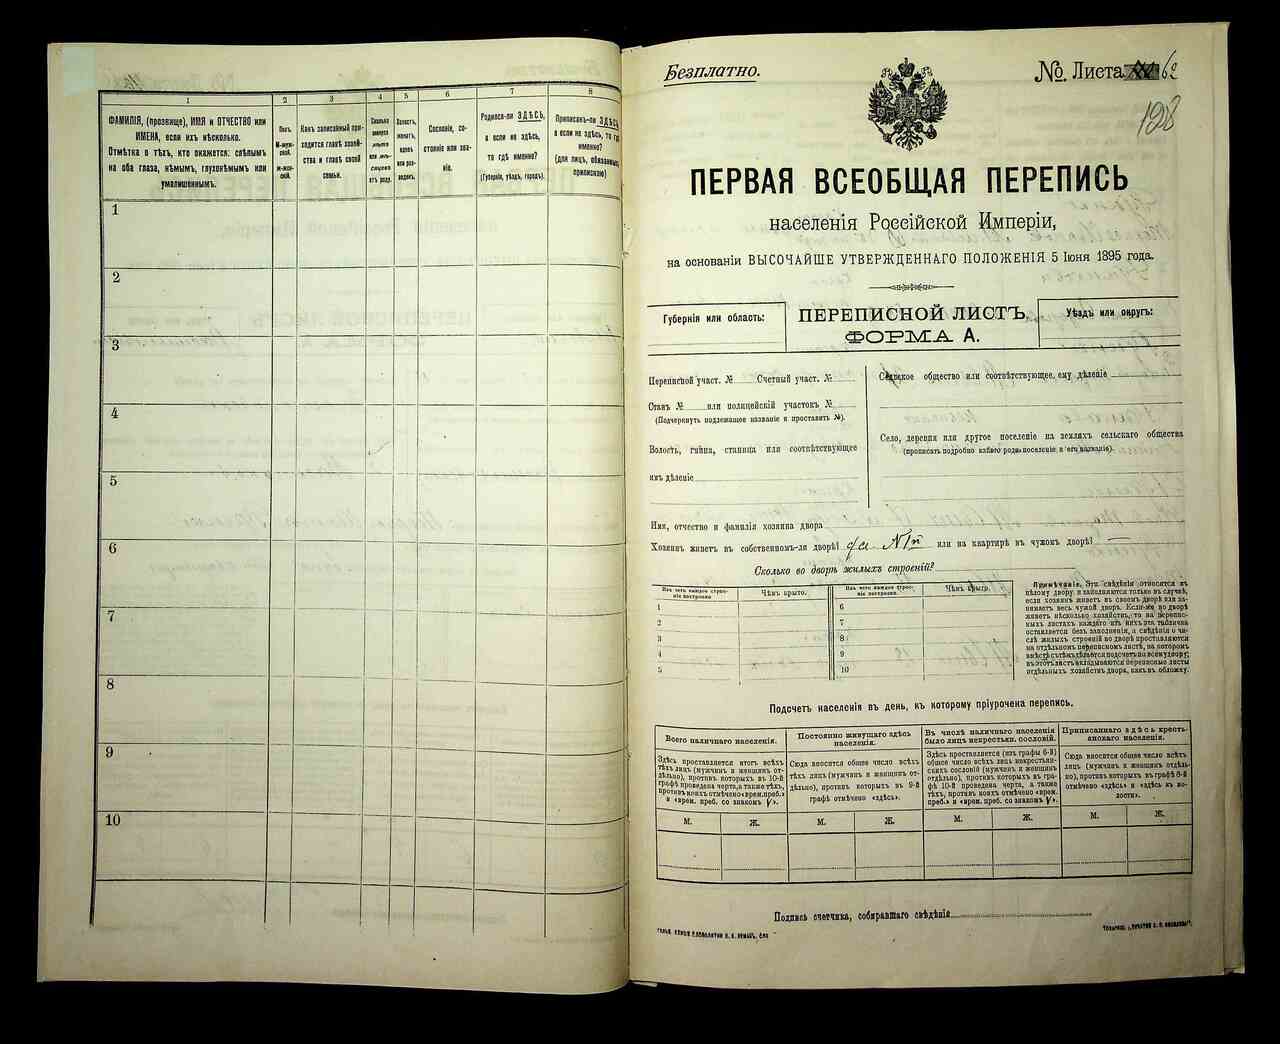 1
2
3
4
5
6
7
8
ФАМИЛІЯ, (прозвище), ИМЯ и ОТЧЕСТВО или
ИМЕНА, если ихъ нѣсколько.
Отмѣтка о тѣхъ, кто окажется: слѣпымъ
на оба глаза, нѣмымъ, глухонѣмымъ или
умалишеннымъ.
Полъ.
М-муж-
ской.
ж-жен-
скій.
Какъ записанный при-
ходится главѣ хозяй-
ства и главѣ своей
семьи.
Сколько
минуло
лѣтъ
или мѣ-
сяцевъ
отъ роду.
Сословіе, со-
стояніе или зва-
ніе.
Родился-ли ЗДѢСЬ,
а если не здѣсь,
то гдѣ именно?
(Губернія, уѣздъ, городъ).
Приписанъ-ли ЗДѢСЬ,
а если не здѣсь, то гдѣ
именно?
(для лицъ, обязанныхъ
припискою)
1
2
3
4
5
6
7
8
9
10
Безплатно.
№ Листа 62
128
ПЕРВАЯ ВСЕОБЩАЯ ПЕРЕПИСЬ
населенія Россійской Имперіи,
на основаніи ВЫСОЧАЙШЕ УТВЕРЖДЕННАГО ПОЛОЖЕНІЯ 5 Іюня 1895 года.
Губернія или область:
ПЕРЕПИСНОЙ ЛИСТЪ,
ФОРМА А.
Уѣздъ или округъ:
Переписной участ. № Счетный участ. №
Станъ № или полицейскій участокъ №
(Подчеркнуть подлежащее названіе и проставить №).
Волость, гмина, станица или соотвѣтствующее
имъ дѣленіе
Сельское общество или соотвѣтствующее, ему дѣленіе
Село, деревня или другое поселеніе на земляхъ сельскаго общества
(прописать подробно какого рода поселеніе и его названіе).
Имя, отчество и фамилія хозяина двора
Хозяинъ живетъ въ собственномъ-ли дворѣ? да №1й или на квартирѣ въ чужомъ дворѣ? —
Сколько во дворѣ жилыхъ строеній?
Изъ чего каждое строе-
ніе построено
Чѣмъ крыто.
Изъ чего каждое строе-
ніе построено.
Чѣмъ крыто.
1
2
3
4
5
6
7
8
9
10
Примѣчаніе. Эти свѣдѣнія относятся къ
цѣлому двору и заполняются только въ случаѣ,
если хозяинъ живетъ въ своемъ дворѣ или за-
нимаетъ весь чужой дворъ. Если-же во дворѣ
живетъ нѣсколько хозяйствъ, то на перепис-
ныхъ листахъ каждаго изъ нихъ эта табличка
оставляется безъ заполненія, а свѣдѣнія о чи-
слѣ жилыхъ строеній во дворѣ проставляются
на отдѣльномъ переписномъ листѣ, на которомъ
вмѣстѣ съ тѣмъ дѣлается подсчетъ по всему двору;
въ этотъ листъ вкладываются переписные листы
отдѣльныхъ хозяйствъ двора, какъ въ обложку.
Подсчетъ населенія въ день, къ которому пріурочена перепись.
Всего наличнаго населенія.
Здѣсь проставляется итогъ всѣхъ
тѣхъ лицъ (мужчинъ и женщинъ от-
дѣльно), противъ которыхъ въ 10-й
графѣ проведена черта, а также тѣхъ,
противъ коихъ отмѣчено «врем. преб.»
и «врем. преб. со знакомъ V».
Постоянно живущаго здѣсь
населенія.
Сюда вносится общее число всѣхъ
тѣхъ лицъ (мужчинъ и женщинъ от-
дѣльно), противъ которыхъ въ 9-й
графѣ отмѣчено «здѣсь».
Въ числѣ наличнаго населенія
было лицъ некрестьян. сословій.
Здѣсь проставляется (изъ графы 6-й)
общее число всѣхъ лицъ некрестьян-
скихъ сословій (мужчинъ и женщинъ
отдѣльно), противъ которыхъ въ гра-
фѣ 10-й проведена черта, а также
тѣхъ, противъ коихъ отмѣчено «врем.
преб.» и «врем. преб. со знакомъ V».
Приписаннаго здѣсь кресть-
янскаго населенія.
Сюда вносится общее число всѣхъ
лицъ (мужчинъ и женщинъ отдѣль-
но), противъ которыхъ въ графѣ 8-й
отмѣчено «здѣсь» и «здѣсь къ во-
лости».
М. Ж. М. Ж. М. Ж. М. Ж.
Подпись счетчика, собиравшаго свѣдѣнія